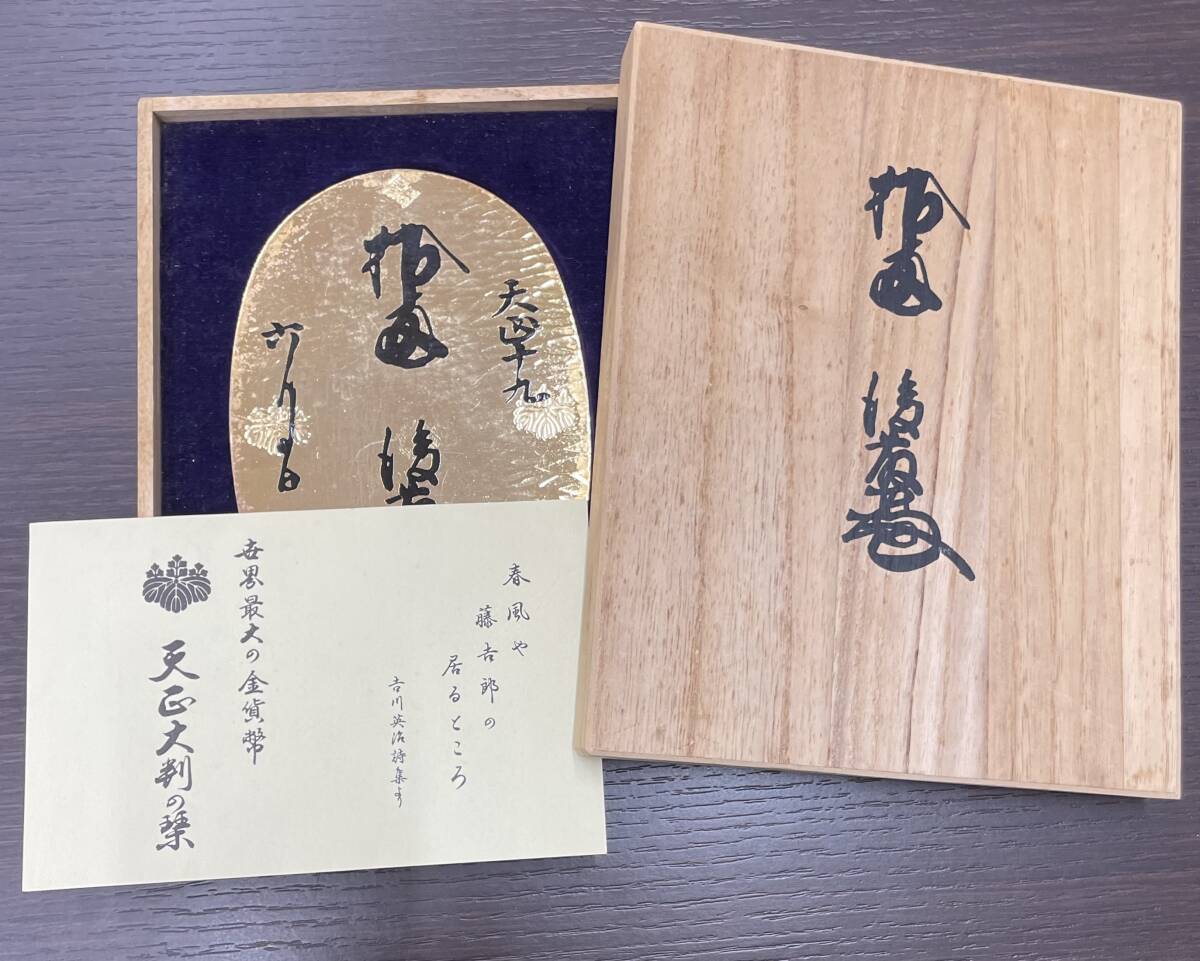 天正十九
拾両
後藤
拾両
後藤
春風や
藤吉郎の
居るところ
吉川英治詩集より
世界最大の金貨幣
天正大判の琹